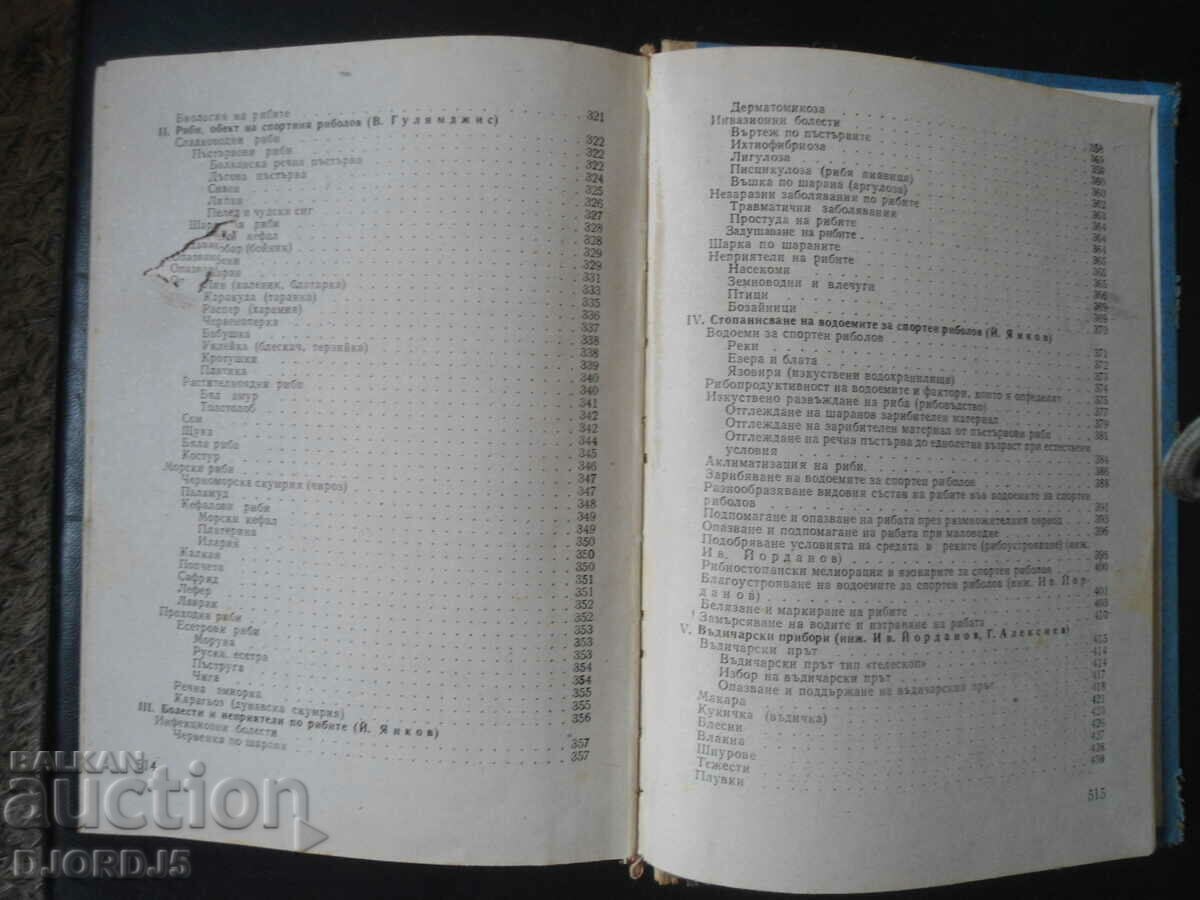 Биология на рибите 321
II. Риби, обект на спортния риболов (В. Гулямджис)
Сладководни риби 322
Пъстървови риби 322
Балканска речна пъстърва 322
Дъгова пъстърва 324
Сивен 325
Липан 326
Пелед и чудски сиг 327
риби 328
кефал 328
(бойник) 329
329
Шаран 331
Лин (каленик, блатарка) 333
Каракуда (таранка) 335
Распер (харамия) 336
Червеноперка 337
Бабушка 338
Уклейка (блескач, терзийка) 338
Кротушки 339
Платика 340
Растителноядни риби 340
Бял амур 341
Толстолоб 342
Сом 342
Щука 344
Бяла риба 345
Костур 346
Морски риби 347
Черноморска скумрия (чироз) 347
Паламуд 348
Кефалови риби 349
Морски кефал 349
Платерина 350
Илария 350
Жалкан 350
Попчета 351
Сафрид 351
Лефер 352
Лаврак 352
Проходни риби 353
Есетрови риби 353
Моруна 353
Руска есетра 354
Пъструга 354
Чига 355
Речна змиорка 355
Карагьоз (дунавска скумрия) 356
III. Болести и неприятели по рибите (Й. Янков)
Инфекциозни болести 357
Червенка по шарана 357
514
Дерматомикоза
Инвазионни болести
Въртеж по пъстървите 358
Ихтиофибриоза
Лигулоза
Писцикулоза (рибя пиявица)
Въшка по шарана (аргулоза) 360
Незаразни заболявания по рибите 362
Травматични заболявания 363
Простуда на рибите 364
Задушаване на рибите 364
Шарка по шараните 365
Неприятели на рибите 365
Насекоми 365
Земноводни и влечуги
Птици 369
Бозайници 369
IV. Стопанисване на водоемите за спортен риболов (Й. Янков) 370
Водоеми за спортен риболов
Реки 371
Езера и блата 372
Язовири (изкуствени водохранилища) 373
Рибопродуктивност на водоемите и фактори, които я определят 375
Изкуствено развъждане на риба (рибовъдство) 377
Отглеждане на шаранов зарибителен материал 379
Отглеждане на зарибителен материал от пъстървови риби 381
Отглеждане на речна пъстърва до едногодишна възраст при естествени
условия 384
Аклиматизация на риби 386
Зарибяване на водоемите за спортен риболов 388
Разнообразяване видовия състав на рибите във водоемите за спортен
риболов 391
Подпомагане и опазване на рибата през размножителния период 393
Опазване и подпомагане на рибата при маловодие 396
Подобряване условията на средата в реките (рибоустрояване) (инж.
Ив. Йорданов) 398
Рибностопански мелиорации в язовирите за спортен риболов 400
Благоустрояване на водоемите за спортен риболов (инж. Ив. Йор-
данов) 401
Белязане и маркиране на рибите 403
Замърсяване на водите и изтравяне на рибата 410
V. Въдичарски прибори (инж. Ив. Йорданов, Г. Алексиев)
Въдичарски прът 415
Въдичарски прът тип «телескоп» 414
Избор на въдичарски прът 417
Опазване и поддържане на въдичарския прът 418
Макара 421
Кукичка (въдичка) 425
Блесни 426
Влакна 437
Шнурове 438
Тежести 439
Плувки
515
BALKAN
auction
DJORDJ5